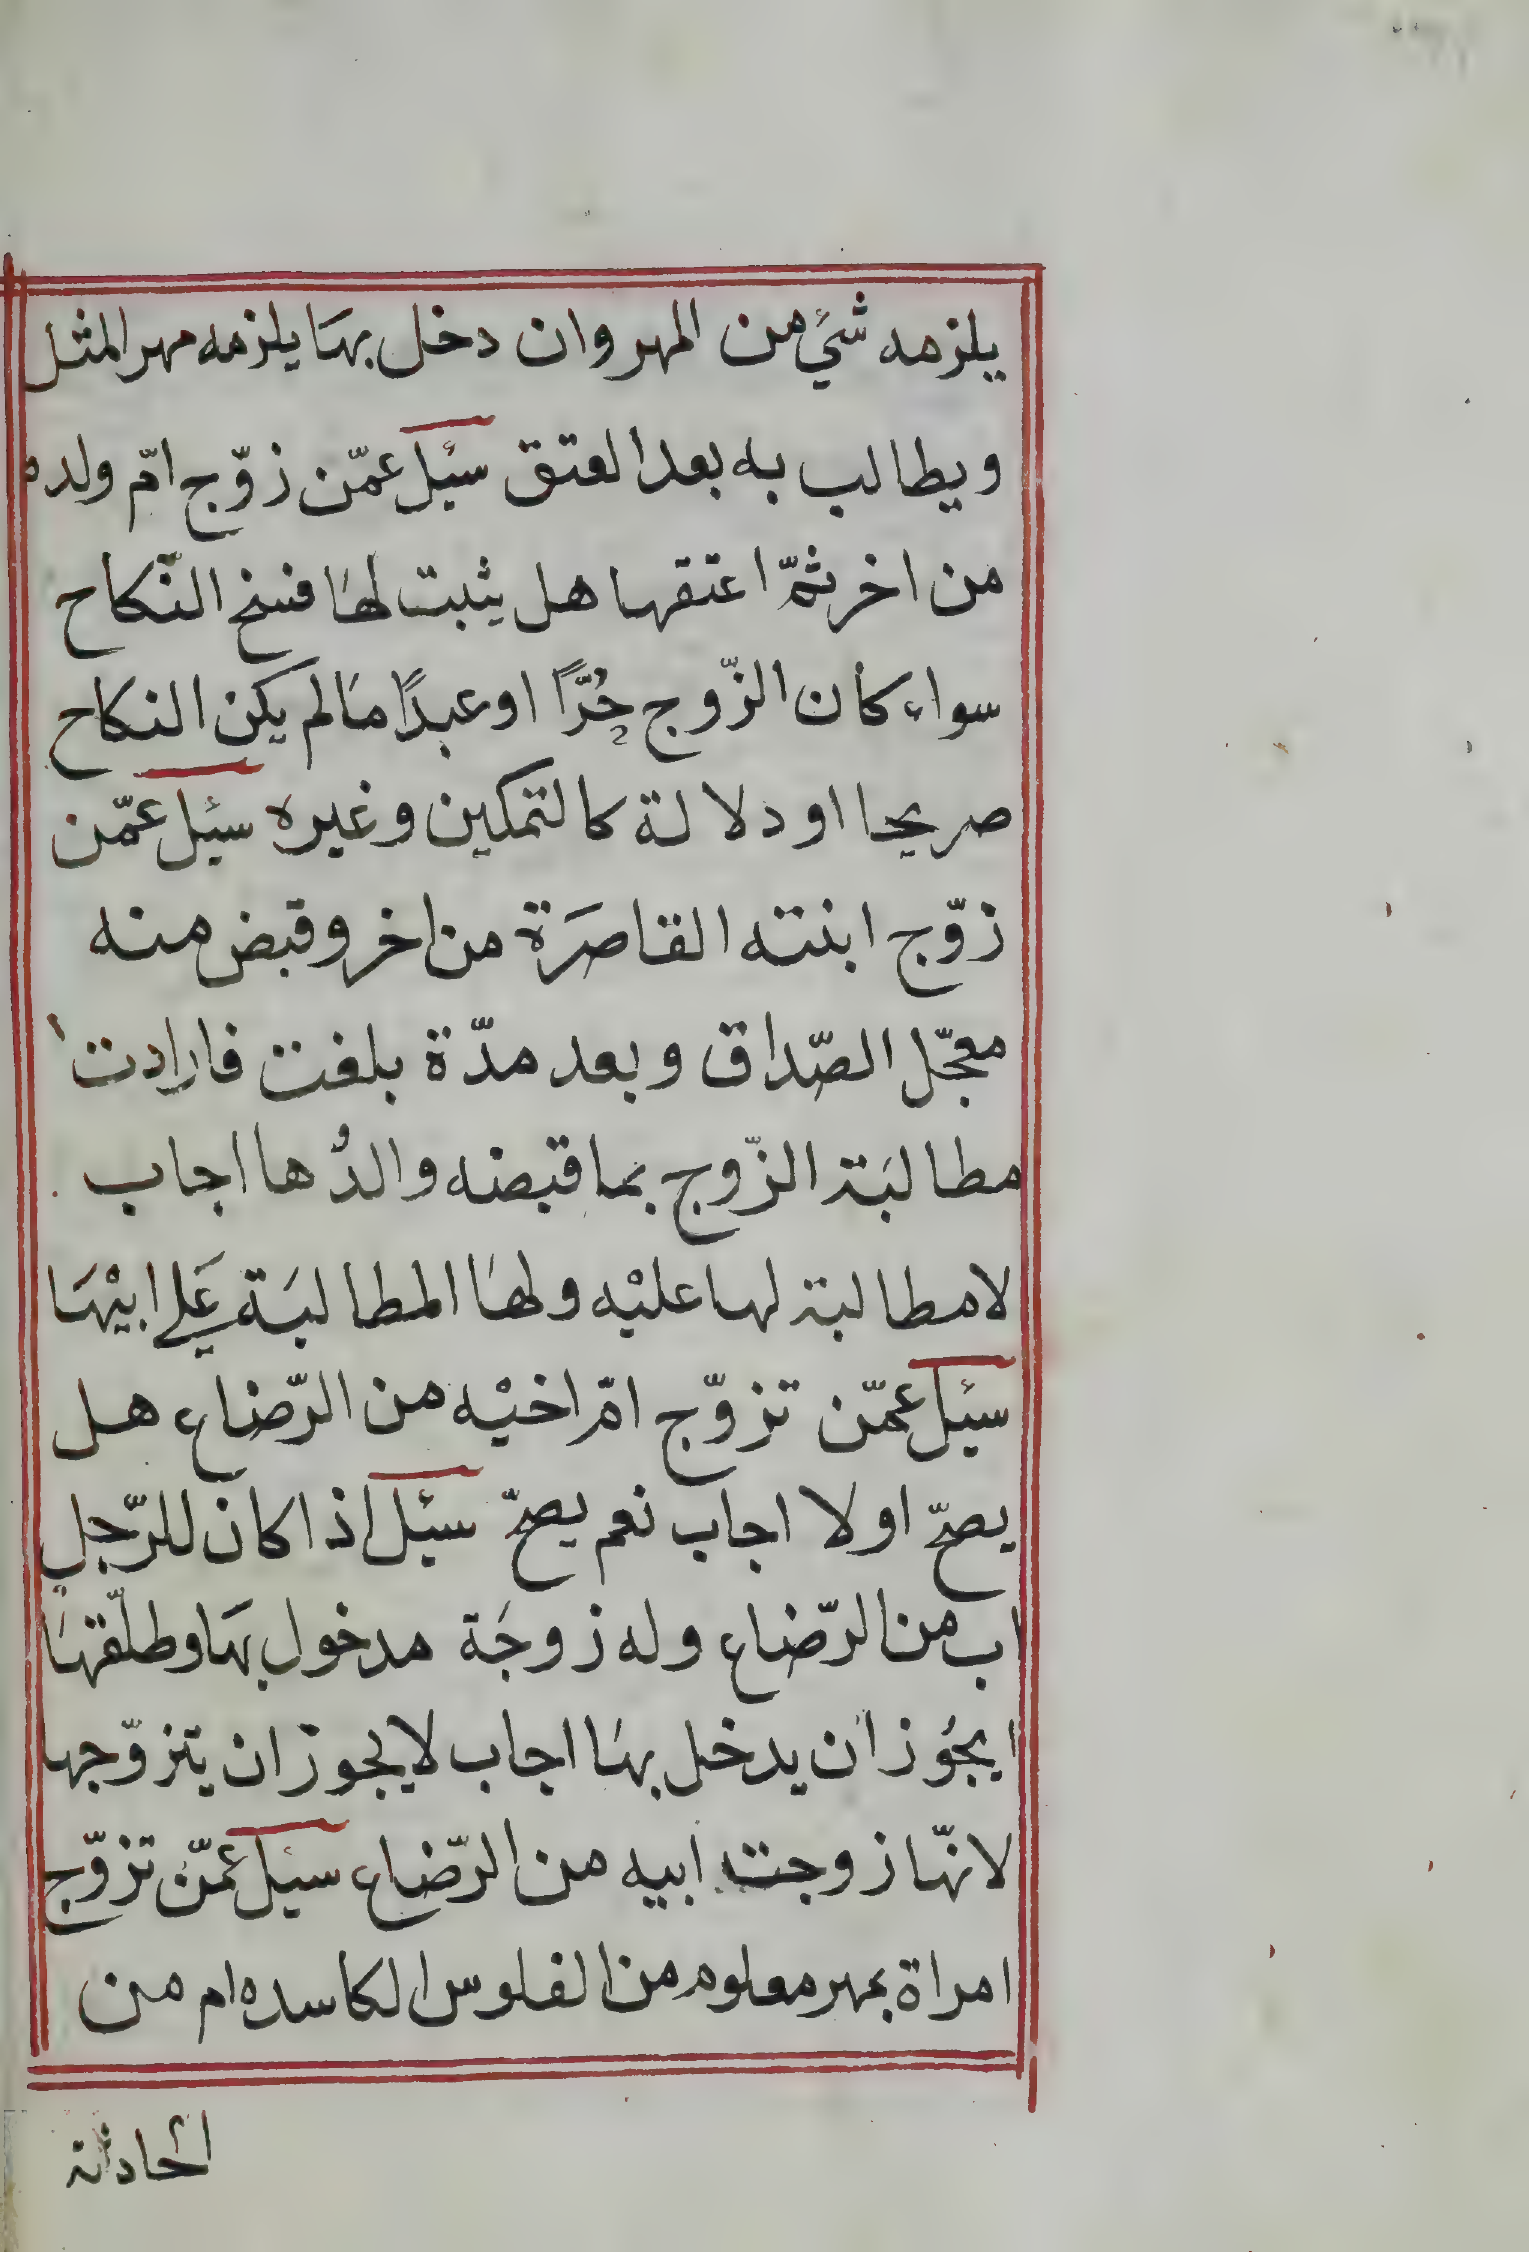 يلزمه شئ من المهر وان دخل بهَا يلزمه مهر المثل
ويطالب به بعد العتق سئيل عمّن زوّج امّ ولده
من اخر ثمّ اعتقها هل يثبت لهَا فسخ النّكاح
سواء كان الزّوج حُرًّا او عبدًا مَا لم يكن النكاح
صريحا او دلالة كالتمكين وغيره سئيل عمّن
زوّج ابنته القاصَرة من اخر وقبض منه
معجّل الصّداق وبعد مدّة بلغت فارادت
مطالبَة الزّوج بما قبضه والدُها اجاب
لا مطالبة لها عليْه ولهَا المطالبَة عَلي ابيْهَا
سئيل عمّن تزوّج امّ اخيْه من الرّضاع هل
يصحّ او لا اجاب نعم يصحّ سئيل اذا كان للرّجل
اب من الرّضاع وله زوجَة مدخول بهَا وطلّقهَا
ايجُوز ان يدخل بهَا اجاب لا يجوز ان يتزوّجها
لانّها زوجت ابيه من الرّضاع سئيل عمّن تزوّج
امراة بمهر معلوم من الفلوس الكاسده ام من
الحادثة